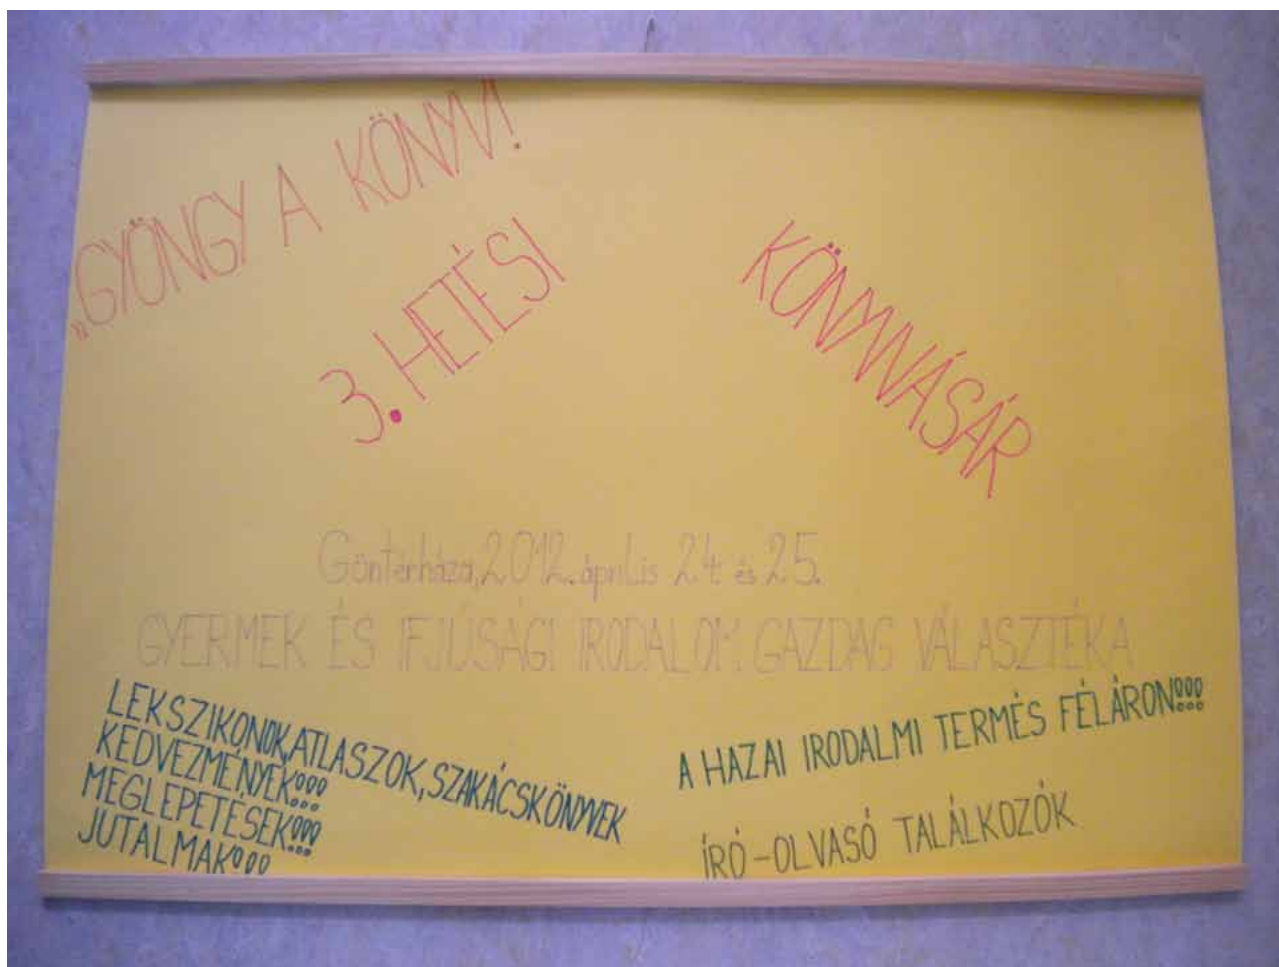 „GYÖNGY A KÖNYV!
3. HETÉSI KÖNYVVÁSÁR
Göntérháza, 2012. április 24. és 25.
GYERMEK ÉS IFJÚSÁGI IRODALOM GAZDAG VÁLASZTÉKA
LEKSZIKONOK, ATLASZOK, SZAKÁCSKÖNYVEK
KEDVEZMÉNYEK!!!
MEGLEPETÉSEK!!!
JUTALMAK!!!
A HAZAI IRODALMI TERMÉS FÉLÁRON!!!
ÍRÓ-OLVASÓ TALÁLKOZÓK